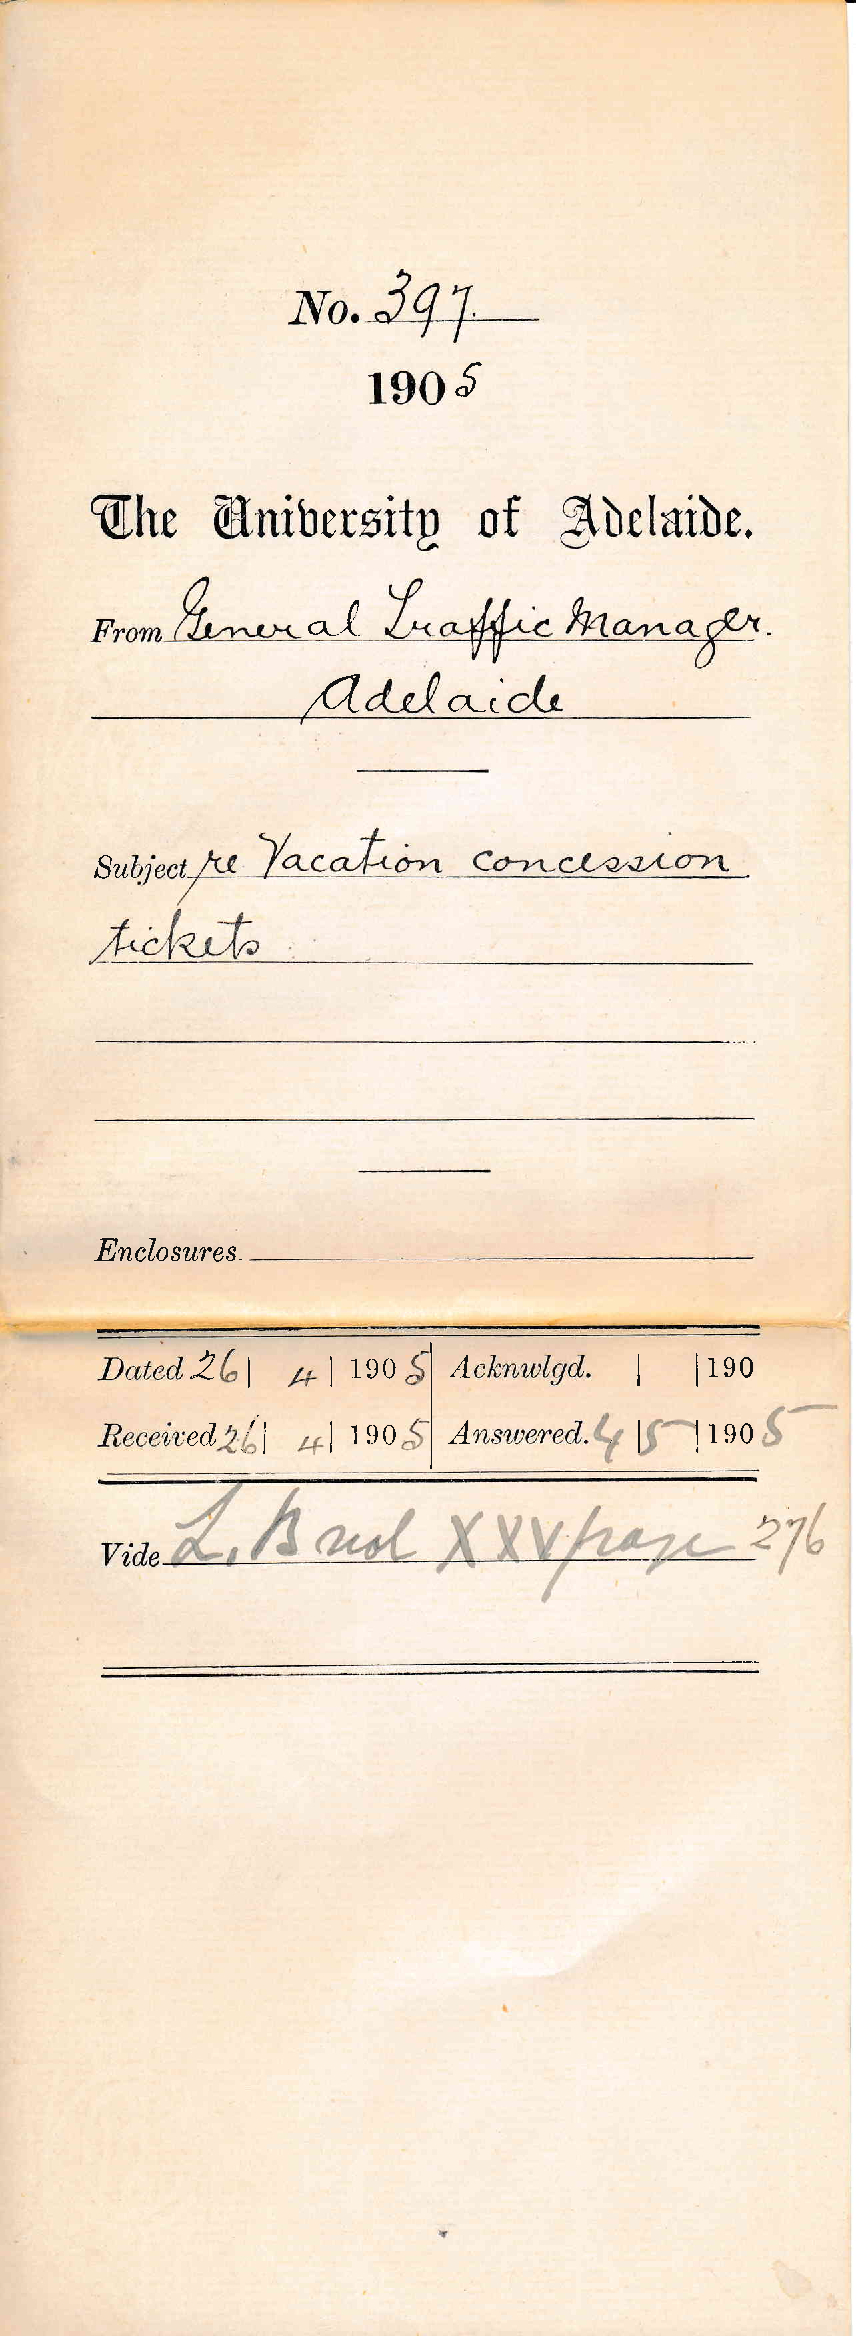 No. 397.
1905
The University of Adelaide.
From General Traffic Manager.
Adelaide
Subject re Vacation concession
tickets
Enclosures.
Dated 26 | 4 | 1905 Acknwlgd. | | 190
Received 26 | 4 | 1905 Answered. 4 | 5 | 1905
Vide L. B vol XXV page 276